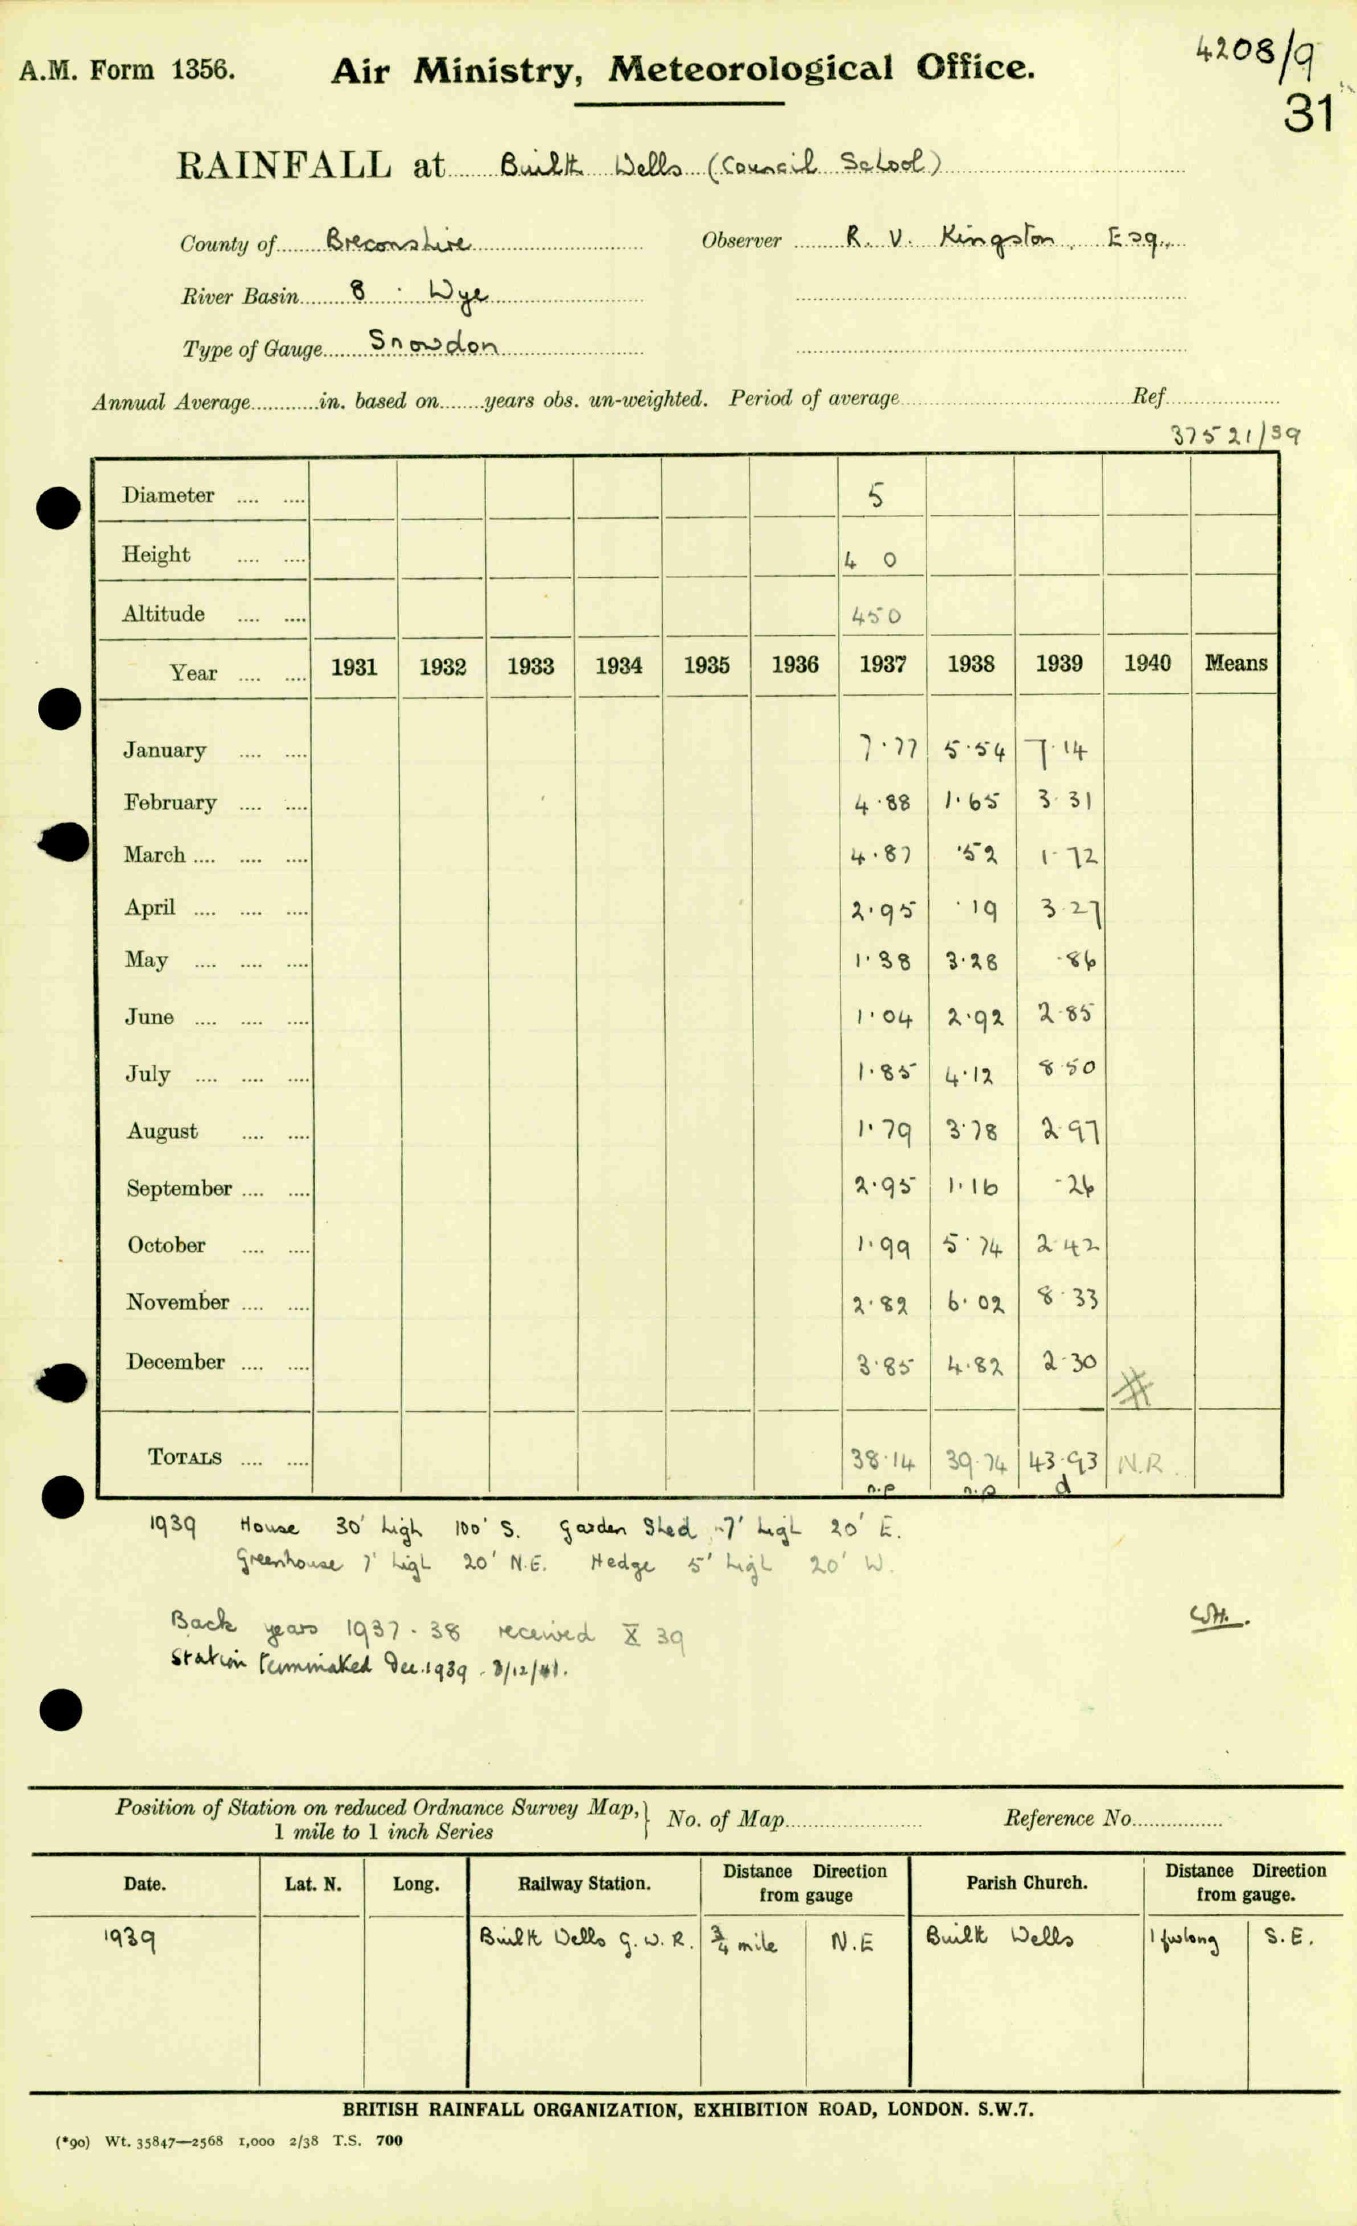 4208/9
A.M. Form 1356. Air Ministry, Meteorological Office.
31
RAINFALL at Builth Wells (Council School)
County of Breconshire Observer R. V. Kingston, Esq.,
River Basin 8 · Wye
Type of Gauge Snowdon
Annual Average............in. based on.......years obs. un-weighted. Period of average.................... Ref....................
37521/39
Diameter .... .... 5
Height .... .... 4 0
Altitude .... .... 450
Year .... .... 1931 1932 1933 1934 1935 1936 1937 1938 1939 1940 Means
January .... .... 7·77 5·54 7·14
February .... .... 4·88 1·65 3·31
March .... .... .... 4·87 ·52 1·72
April .... .... .... 2·95 ·19 3·27
May .... .... .... 1·38 3·28 ·86
June .... .... .... 1·04 2·92 2·85
July .... .... .... 1·85 4·12 8·50
August .... .... 1·79 3·78 2·97
September .... .... 2·95 1·16 ·26
October .... .... 1·99 5·74 2·42
November .... .... 2·82 6·02 8·33
December .... .... 3·85 4·82 2·30
TOTALS .... .... 38·14 39·74 43·93 N.R.
n.p n.p d
1939 House 30' high 100' S. Garden Shed 7' high 20' E.
Greenhouse 7' high 20' N.E. Hedge 5' high 20' W.
Back years 1937-38 received X 39
Station terminated Dec. 1939 - 8/12/41.
Position of Station on reduced Ordnance Survey Map, } No. of Map.................... Reference No................
1 mile to 1 inch Series
Date. Lat. N. Long. Railway Station. Distance Direction from gauge Parish Church. Distance Direction from gauge.
1939 Builth Wells G.W.R. ¾ mile N.E Builth Wells 1 furlong S.E.
BRITISH RAINFALL ORGANIZATION, EXHIBITION ROAD, LONDON. S.W.7.
(*90) Wt. 35847—2568 1,000 2/38 T.S. 700